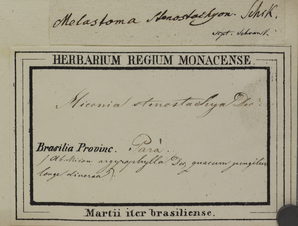 Melastoma stenostachyon. Schrk.
HERBARIUM REGIUM MONACENSE.
Miconia stenostachya Dec.
Brasilia Provinc. Pará.
argyrophylla Dec quacum jungitur
longe diversa
Martii iter brasiliense.